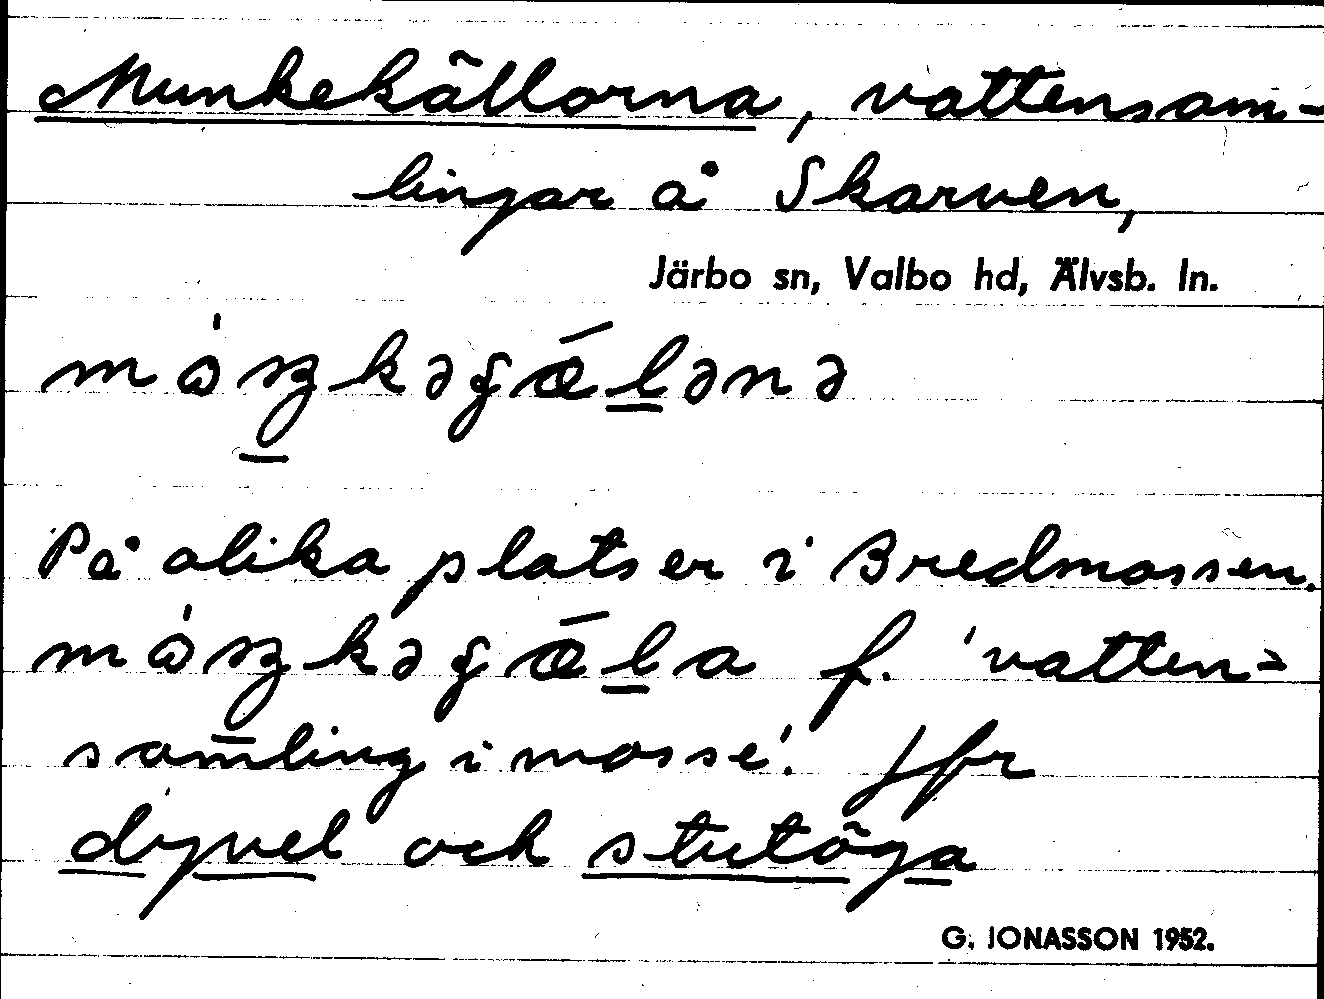 Munkekällorna, vattensam-
lingar å Skarven,
Järbo sn, Valbo hd, Älvsb. ln.
På olika platser i Bredmossen.
f. 'vatten=
samling i mosse'. Jfr
dyvel och stutöga
G. JONASSON 1952.